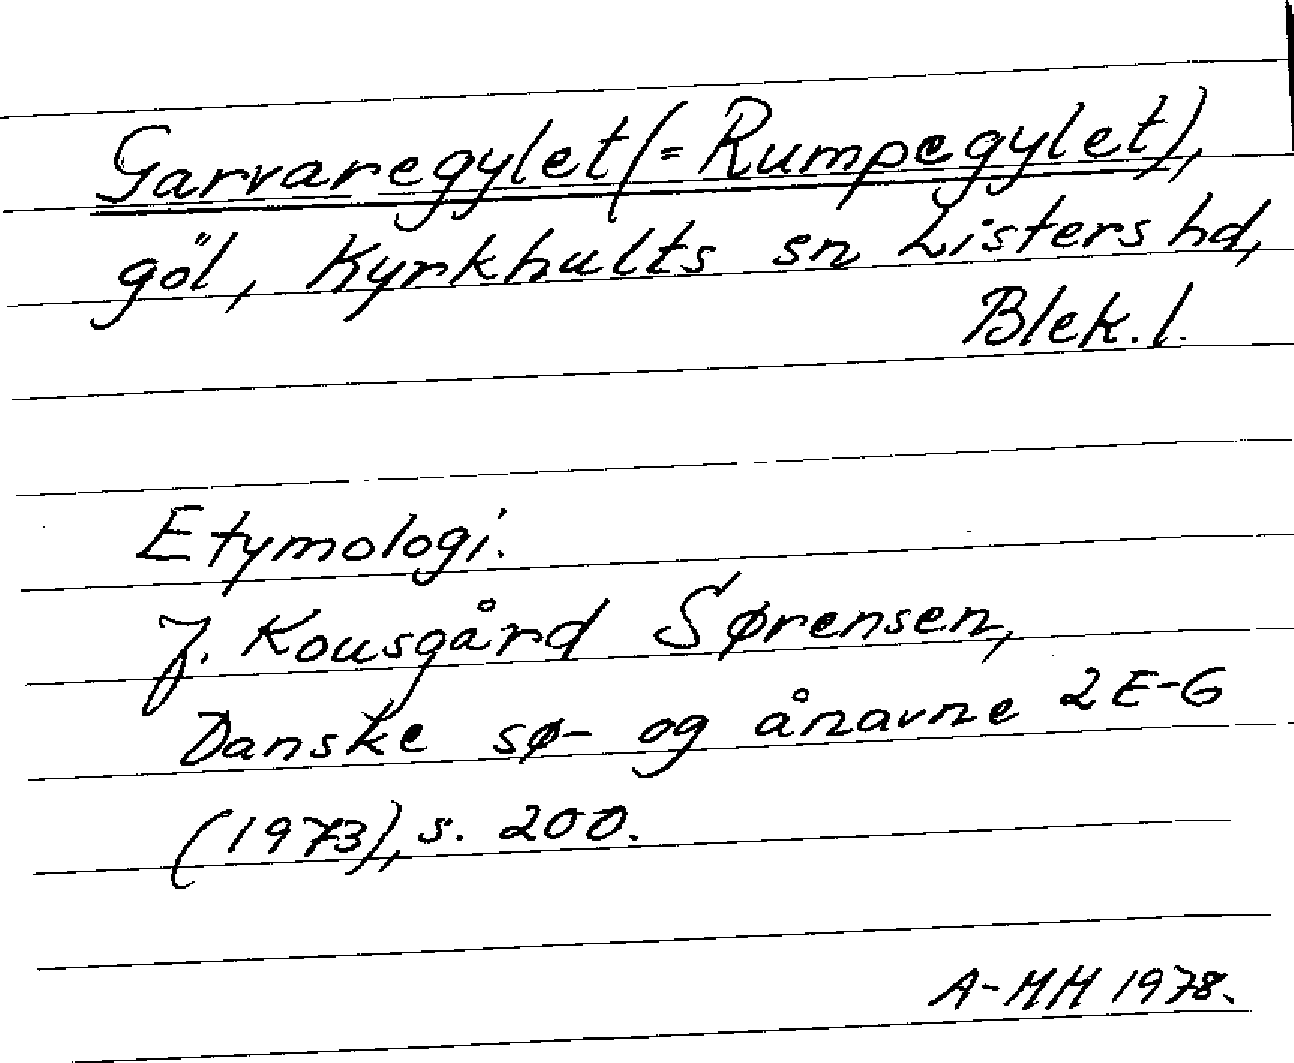 Garvaregylet (= Rumpegylet),
göl, Kyrkhults sn Listers hd,
Blek. l.
Etymologi.
J. Kousgård Sørensen,
Danske sø- og ånavne 2 E-G
(1973), s. 200.
A-MH 1978.